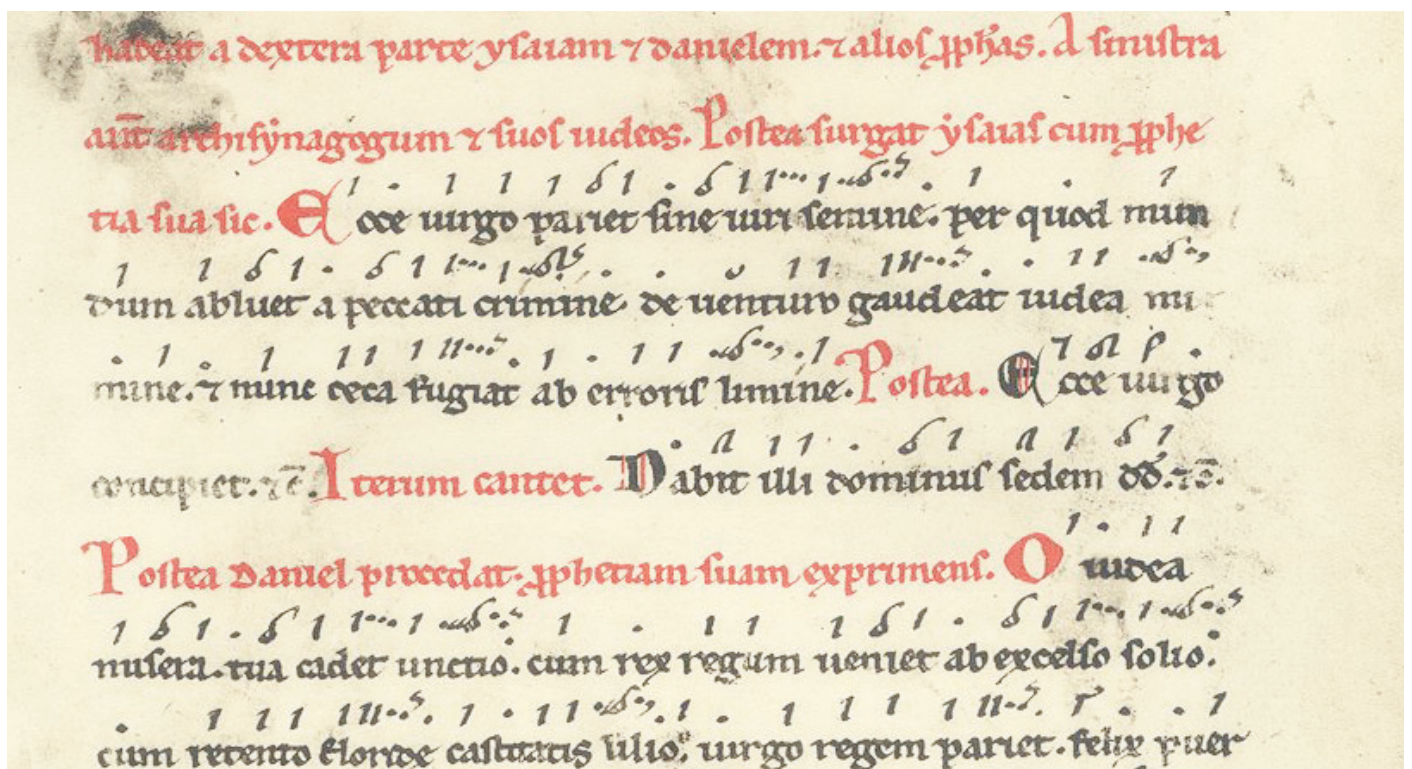 habeat a dextera parte ysaiam ⁊ danielem. ⁊ alios ꝓph̄as. A sinistra
aūt archisẏnagogum ⁊ suos iudeos. Postea surgat ẏsaias cum ꝓphe
tia sua sic. Ecce uirgo pariet sine uiri semine. per quod mun
dum abluet a peccati crimine de uenturo gaudeat iudea nu
mine. ⁊ nunc ceca fugiat ab erroris limine. Postea. Ecce uirgo
concipiet. ⁊c̄. Iterum cantet. Dabit illi dominus sedem dd̄. ⁊c̄.
Postea Daniel procedat. ꝓphetiam suam exprimens. O iudea
misera. tua cadet unctio. cum rex regum ueniet ab excelso solio.
cum retento floride castitatis lilio. uirgo regem pariet. felix puer